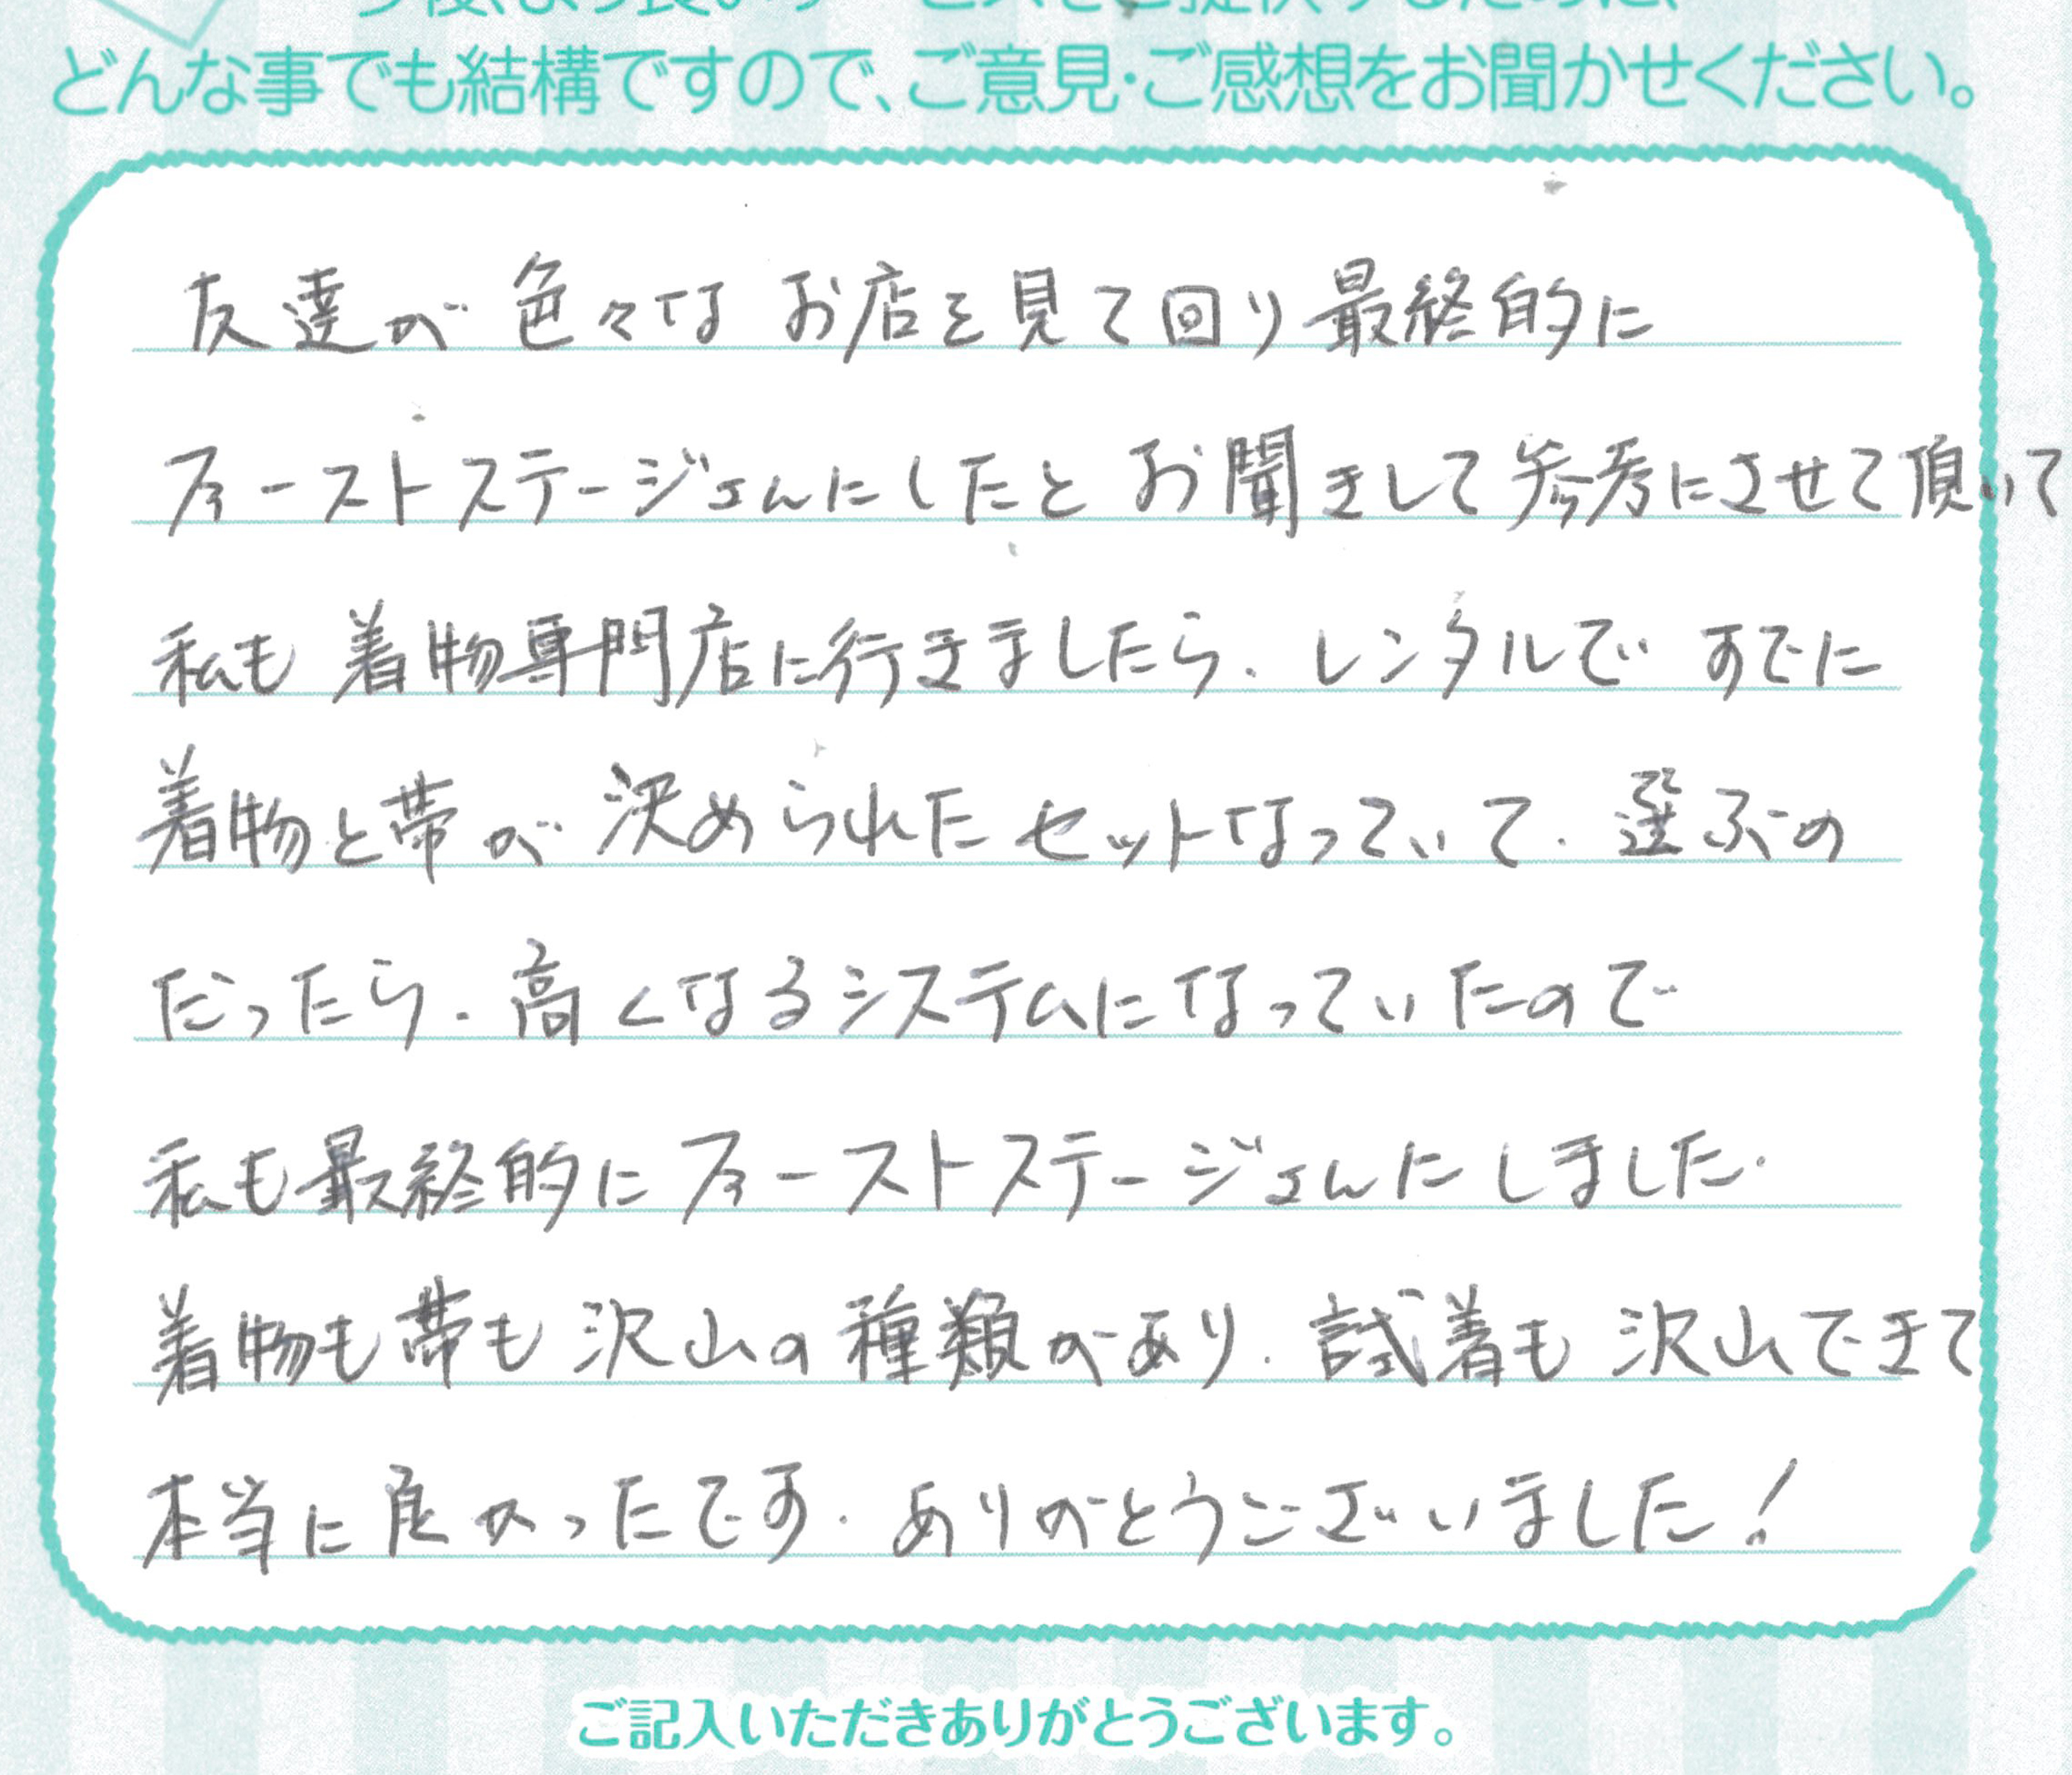 今後、より良いサービスをご提供するために、
どんな事でも結構ですので、ご意見・ご感想をお聞かせください。
友達が色々なお店を見て回り最終的に
ファーストステージさんにしたとお聞きして参考にさせて頂いて
私も着物専門店に行きましたら、レンタルですでに
着物と帯が決められたセットなっていて、選ぶの
だったら、高くなるシステムになっていたので
私も最終的にファーストステージさんにしました。
着物も帯も沢山の種類があり、試着も沢山できて
本当に良かったです。ありがとうございました!
ご記入いただきありがとうございます。